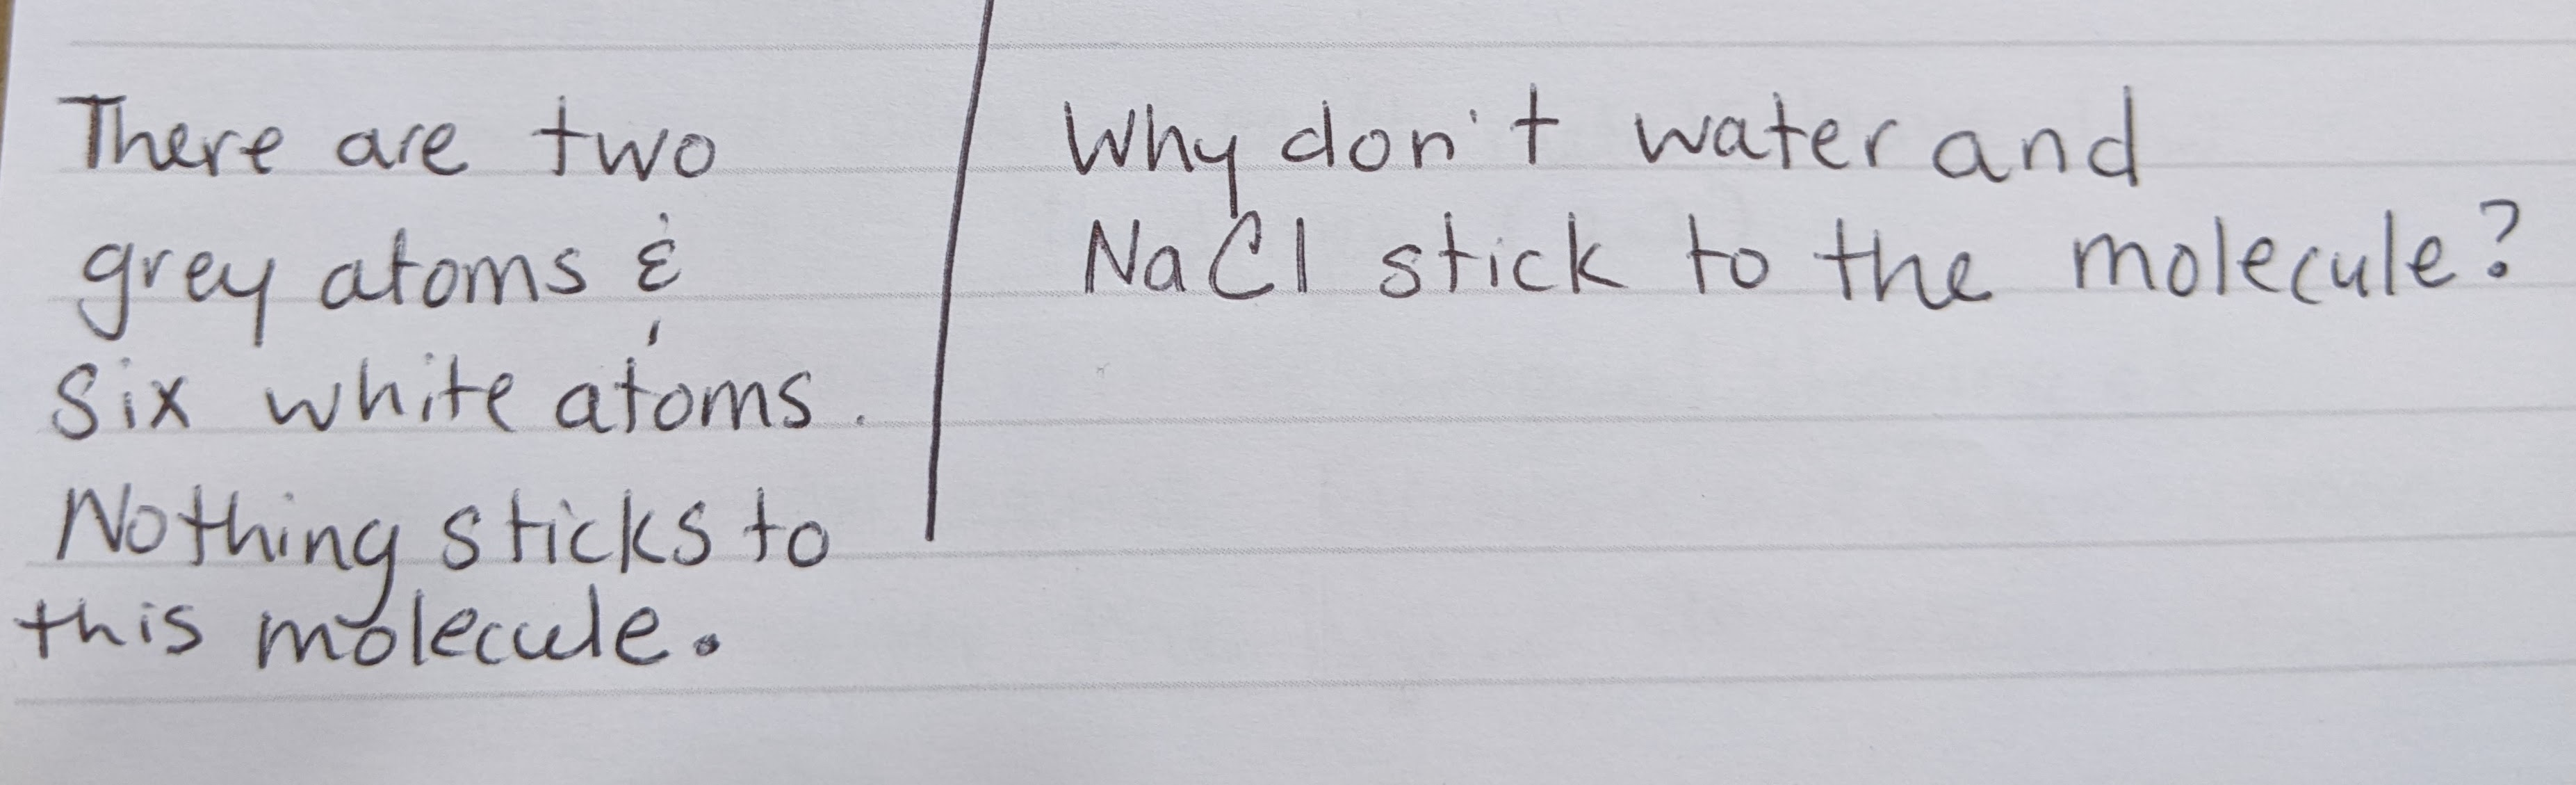 There are two
grey atoms &
six white atoms.
Nothing sticks to
this molecule.
Why don't water and
NaCl stick to the molecule?